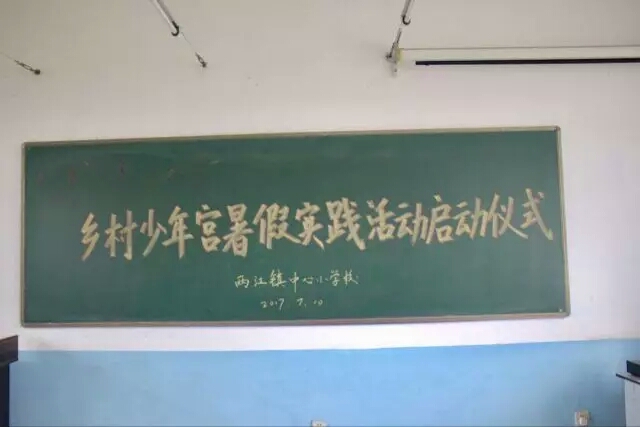 乡村少年宫暑假实践活动启动仪式
两江镇中心小学校
2017.7.10